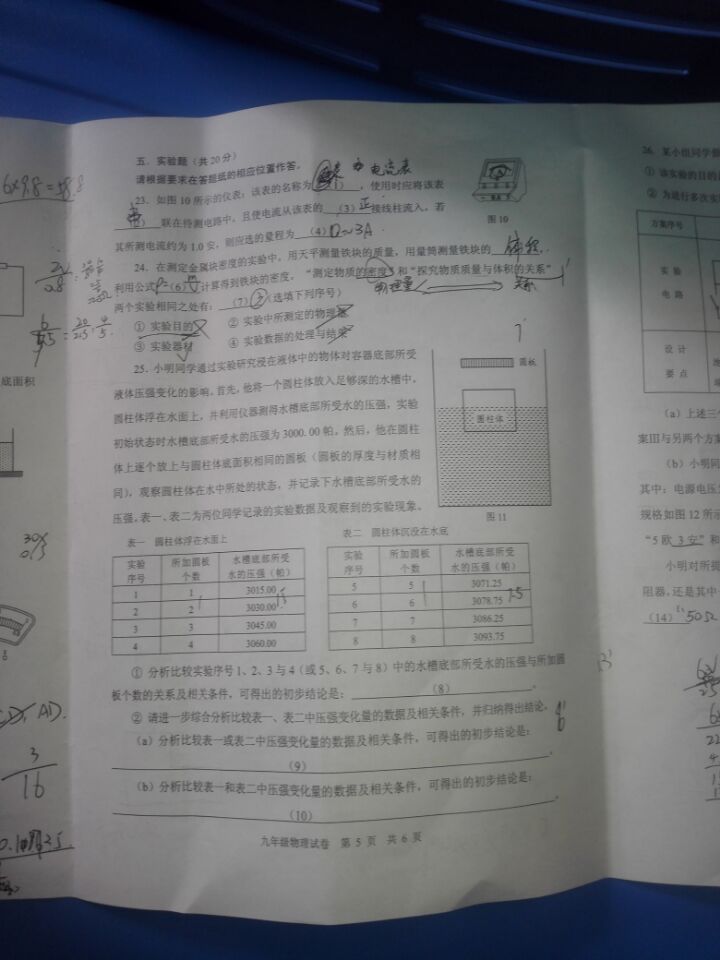 6×9.8=58.8
五．实验题（共20分）
请根据要求在答题纸的相应位置作答。
23．如图10所示的仪表，该表的名称为（1），使用时应将该表
电流表
（2）联在待测电路中，且使电流从该表的（3）正接线柱流入。若
其所测电流约为1.0安，则应选的量程为（4）0~3A
图10
24．在测定金属块密度的实验中，用天平测量铁块的质量，用量筒测量铁块的体积，
利用公式（6）计算得到铁块的密度。“测定物质的密度”和“探究物质质量与体积的关系”
物理量
关系
两个实验相同之处有：（7）③（选填下列序号）
① 实验目的 ② 实验中所测定的物理量
③ 实验器材 ④ 实验数据的处理与结果
25．小明同学通过实验研究浸在液体中的物体对容器底部所受
液体压强变化的影响，首先，他将一个圆柱体放入足够深的水槽中，
圆柱体浮在水面上，并利用仪器测得水槽底部所受水的压强，实验
初始状态时水槽底部所受水的压强为3000.00帕，然后，他在圆柱
体上逐个放上与圆柱体底面积相同的圆板（圆板的厚度与材质相
同），观察圆柱体在水中所处的状态，并记录下水槽底部所受水的
压强，表一、表二为两位同学记录的实验数据及观察到的实验现象。
圆板
圆柱体
图11
表一 圆柱体浮在水面上
实验序号 所加圆板个数 水槽底部所受水的压强（帕）
1 1 3015.00
2 2 3030.00
3 3 3045.00
4 4 3060.00
表二 圆柱体沉没在水底
实验序号 所加圆板个数 水槽底部所受水的压强（帕）
5 5 3071.25
6 6 3078.75
7 7 3086.25
8 8 3093.75
① 分析比较实验序号1、2、3与4（或5、6、7与8）中的水槽底部所受水的压强与所加圆
板个数的关系及相关条件，可得出的初步结论是：（8）。
② 请进一步综合分析比较表一、表二中压强变化量的数据及相关条件，并归纳得出结论。
（a）分析比较表一或表二中压强变化量的数据及相关条件，可得出的初步结论是：
（9）
（b）分析比较表一和表二中压强变化量的数据及相关条件，可得出的初步结论是：
（10）。
九年级物理试卷 第 5 页 共 6 页
底面积
AD.
3
16
26．某小组同学
① 该实验的目的
② 为进行多次实
方案序号
实 验
电 路
设 计
要 点
（a）上述三
案III与另两个方
（b）小明同
其中：电源电压
规格如图12所示
“5欧 3安”和
小明对所提
阻器，还是其中
（14）50Ω